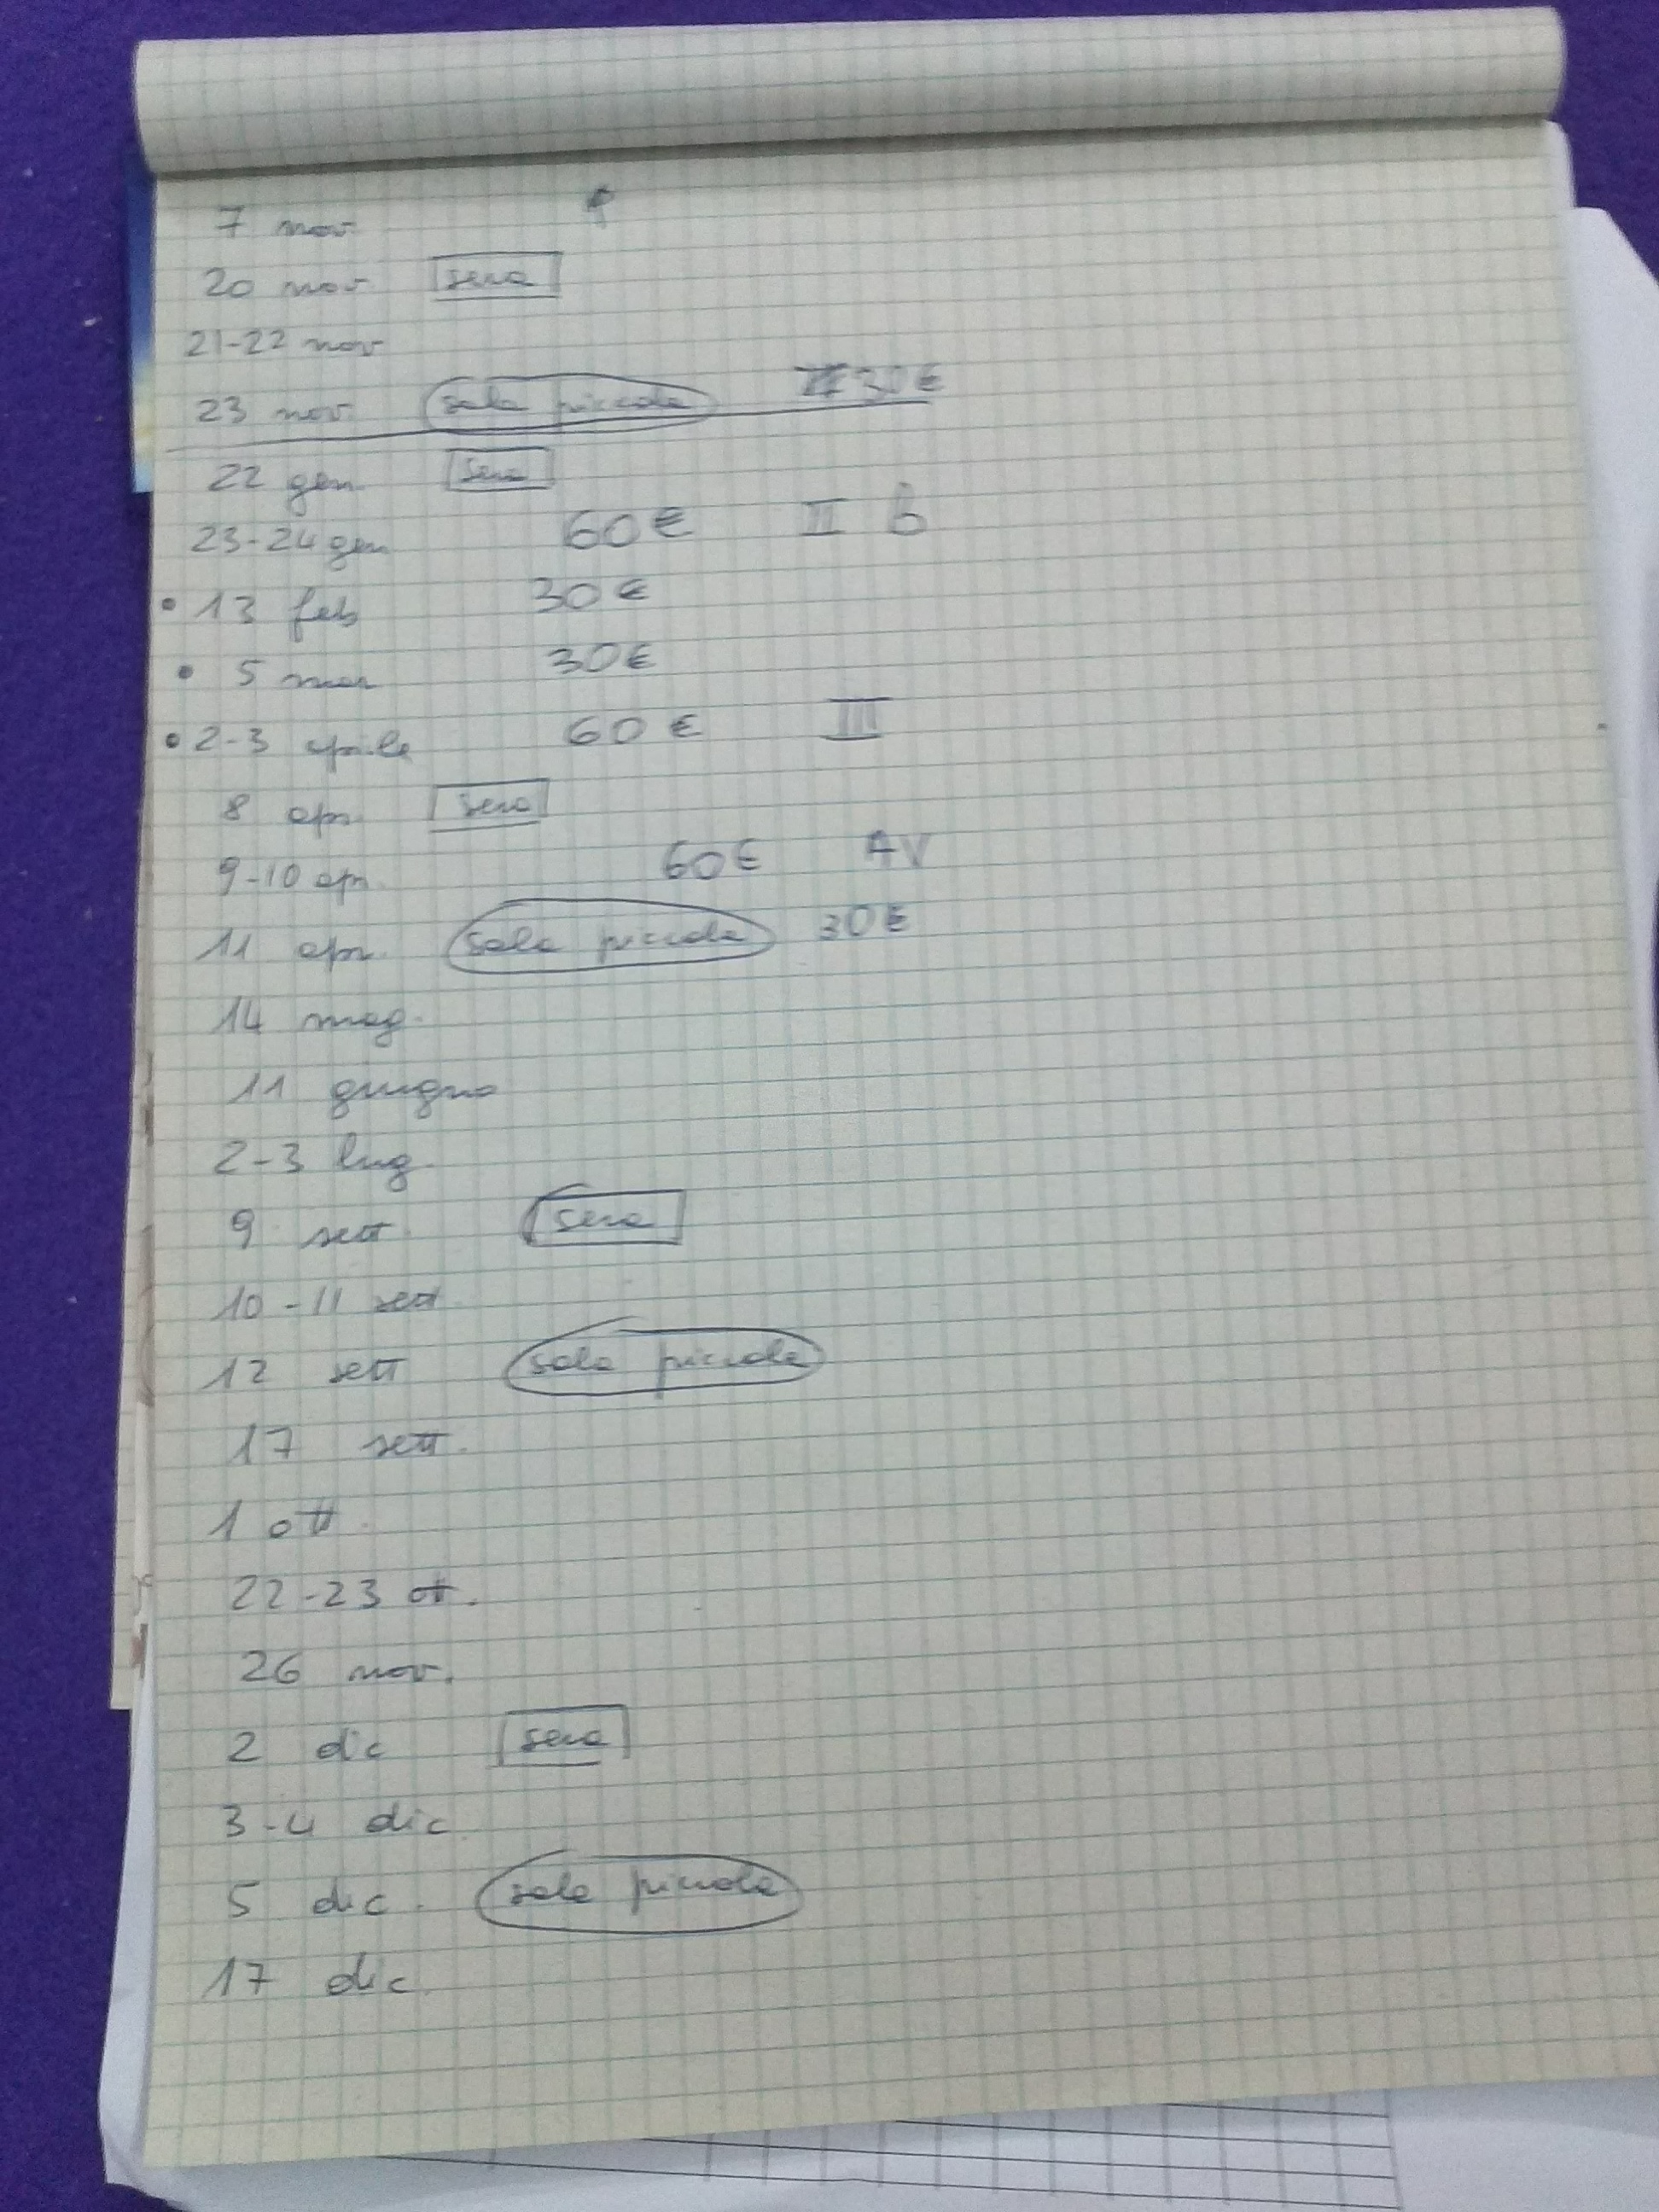 7 nov.
20 nov. sera
21-22 nov
23 nov. sala piccola 30€
22 gen. sera
23-24 gen 60€ II B
• 13 feb 30€
• 5 mar 30€
• 2-3 aprile 60€ III
8 apr. sera
9-10 apr. 60€ AV
11 apr. sala piccola 30€
14 mag.
11 giugno
2-3 lug.
9 sett. sera
10-11 sett.
12 sett sala piccola
17 sett.
1 ott.
22-23 ott.
26 nov.
2 dic sera
3-4 dic.
5 dic. sala piccola
17 dic.